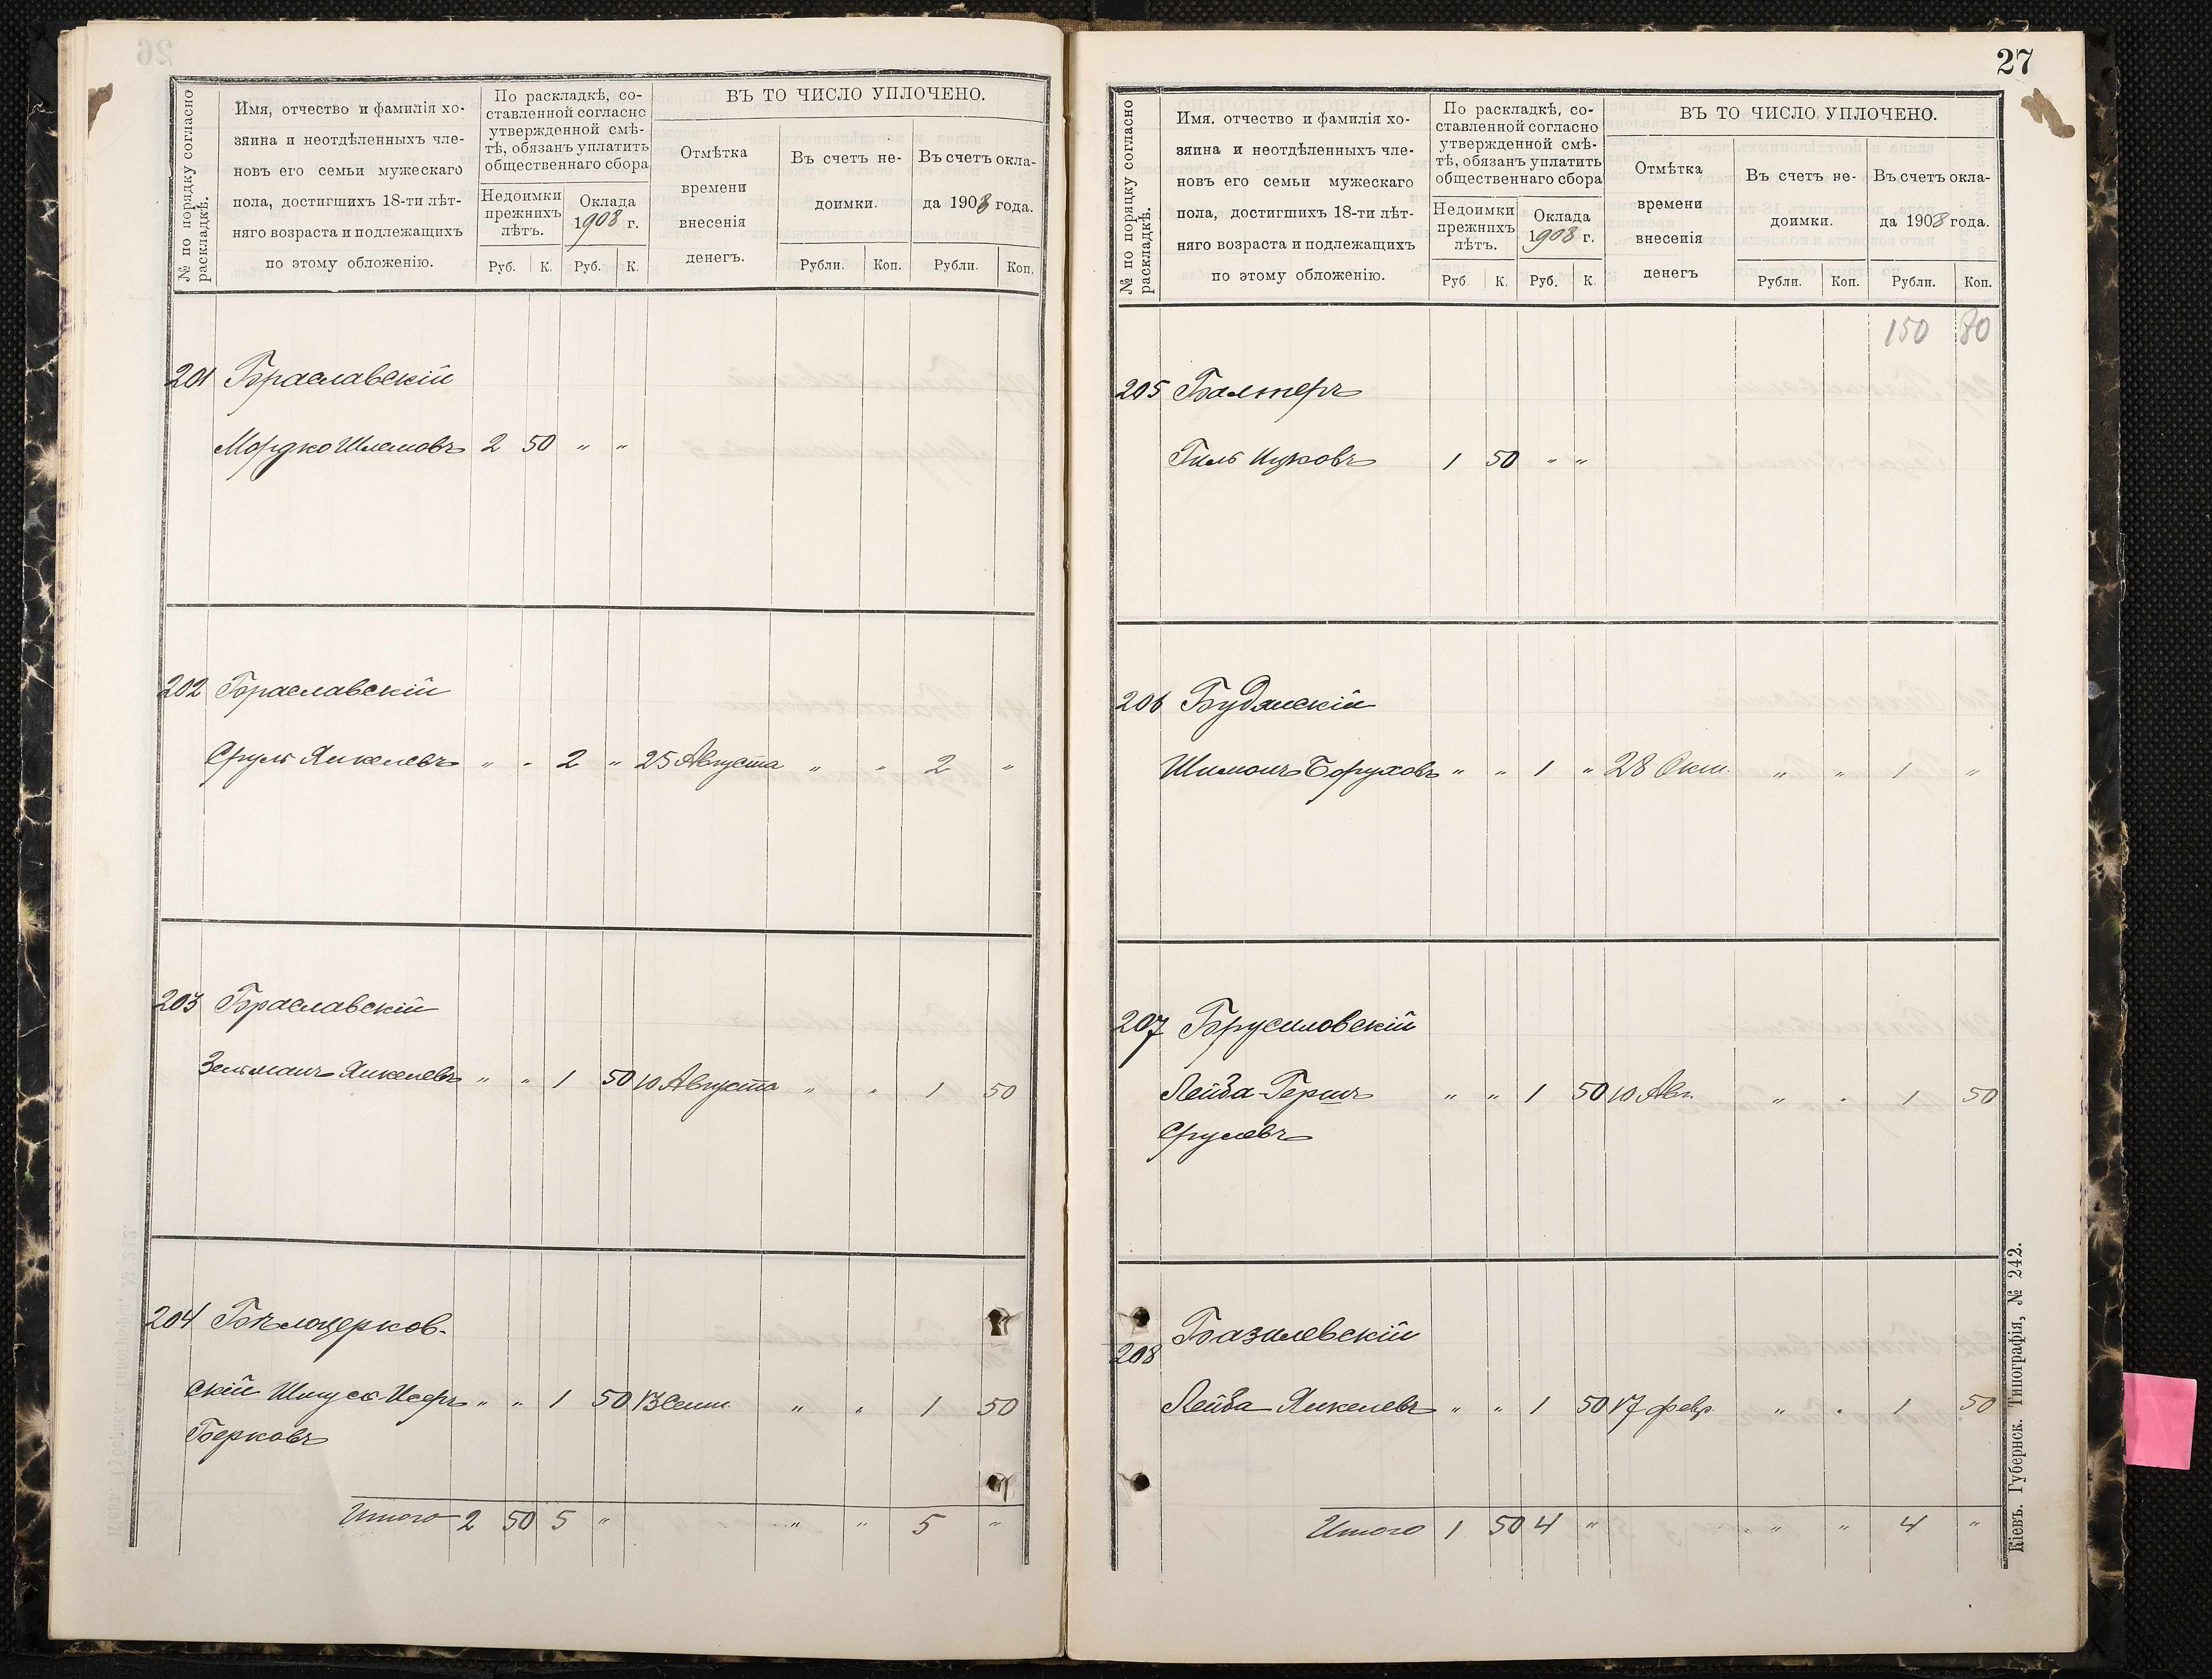 № по порядку согласно
раскладкѣ.
Имя, отчество и фамилія хо-
зяина и неотдѣленныхъ чле-
новъ его семьи мужескаго
пола, достигшихъ 18-ти лѣт-
няго возраста и подлежащихъ
по этому обложенію.
По раскладкѣ, со-
ставленной согласно
утвержденной смѣ-
тѣ, обязанъ уплатить
общественнаго сбора
Недоимки
прежнихъ
лѣтъ.
Оклада
1908 г.
Руб. К. Руб. К.
ВЪ ТО ЧИСЛО УПЛОЧЕНО.
Отмѣтка
времени
внесенія
денегъ.
Въ счетъ не-
доимки.
Въ счетъ окла-
да 1908 года.
Рубли. Коп. Рубли. Коп.
201 Браславскій
Мордко Шлемовъ 2 50 „ „
202 Браславскій
Сруль Янкелевъ „ „ 2 „ 25 Августа „ „ 2 „
203 Браславскій
Зельманъ Янкелевъ „ „ 1 50 10 Августа „ „ 1 50
204 Бѣлоцерков-
скій „ „ 1 50 13 Сент. „ „ 1 50
Берковъ
Итого 2 50 5 „ „ „ 5 „
27
№ по порядку согласно
раскладкѣ.
Имя, отчество и фамилія хо-
зяина и неотдѣленныхъ чле-
новъ его семьи мужескаго
пола, достигшихъ 18-ти лѣт-
няго возраста и подлежащихъ
по этому обложенію.
По раскладкѣ, со-
ставленной согласно
утвержденной смѣ-
тѣ, обязанъ уплатить
общественнаго сбора
Недоимки
прежнихъ
лѣтъ.
Оклада
1908 г.
Руб. К. Руб. К.
ВЪ ТО ЧИСЛО УПЛОЧЕНО.
Отмѣтка
времени
внесенія
денегъ
Въ счетъ не-
доимки.
Въ счетъ окла-
да 1908 года.
Рубли. Коп. Рубли. Коп.
150 80
205 Балтеръ
Гиль Ицковъ 1 50 „ „
206 Будянскій
Шимонъ Боруховъ „ „ 1 „ 28 Окт. „ „ 1 „
207 Брусиловскій
Лейба-Гершъ „ „ 1 50 10 Авг. „ „ 1 50
Срулевъ
208 Базилевскій
Лейба Янкелевъ „ „ 1 50 17 февр. „ „ 1 50
Итого 1 50 4 „ „ „ 4 „
Кіевъ. Губернск. Типографія, № 242.